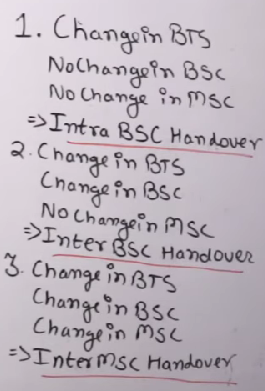 1. Change in BTS
No Change in BSC
No Change in MSC
=> Intra BSC Handover
2. Change in BTS
Change in BSC
No Change in MSC
=> Inter BSC Handover
3. Change in BTS
Change in BSC
Change in MSC
=> Inter MSC Handover